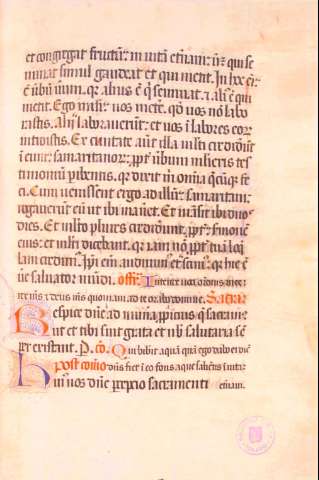 et congregat fructū in vitā eternā: ut qui se
minat simul gaudeat et qui metit. In hoc eī
ē ūbū uerū. qr alius ē q̄ seminat. ⁊ alī ē qui
metit. Ego misi uos mete. qd uos nō labo
rastis. Alij laborauerūt: et uos ī labores eor
introistis. Ex ciuitate aūt illa mlti crediderūt
ī eum samaritanor: ppt ūbum mulieris tes
timonium phibentis. qr dixit m omīa q̄cūqꝫ fe
ci. Cum uenissent ergo ad illū samaritani:
rogauerūt eū ut ibi maneret. Et māsit ibi duos
dies. Et mlto plures crediderūt. ppt sermonē
eius: et mlieri dicebant. qr iam nō ppt tuā loq̄
lam credim. Ipī eni audiuim et scim. qr hic ē
ue saluator mūdi. offr. Intende uoci orōnis
mee rex ms ⁊ deus ms quoniam ad te orabo dnine. Sacra
Respice dnē ad munera ppicius q̄ sacram
ut et tibi sint grata et nob salutaria sē
per existant. P. co. Qui biberit aquā quā ego dabo ei dic
Post comō dns fiet ī eo fons aque salientis ī uitā
Huius nos dnē perceptio sacramenti etnam.